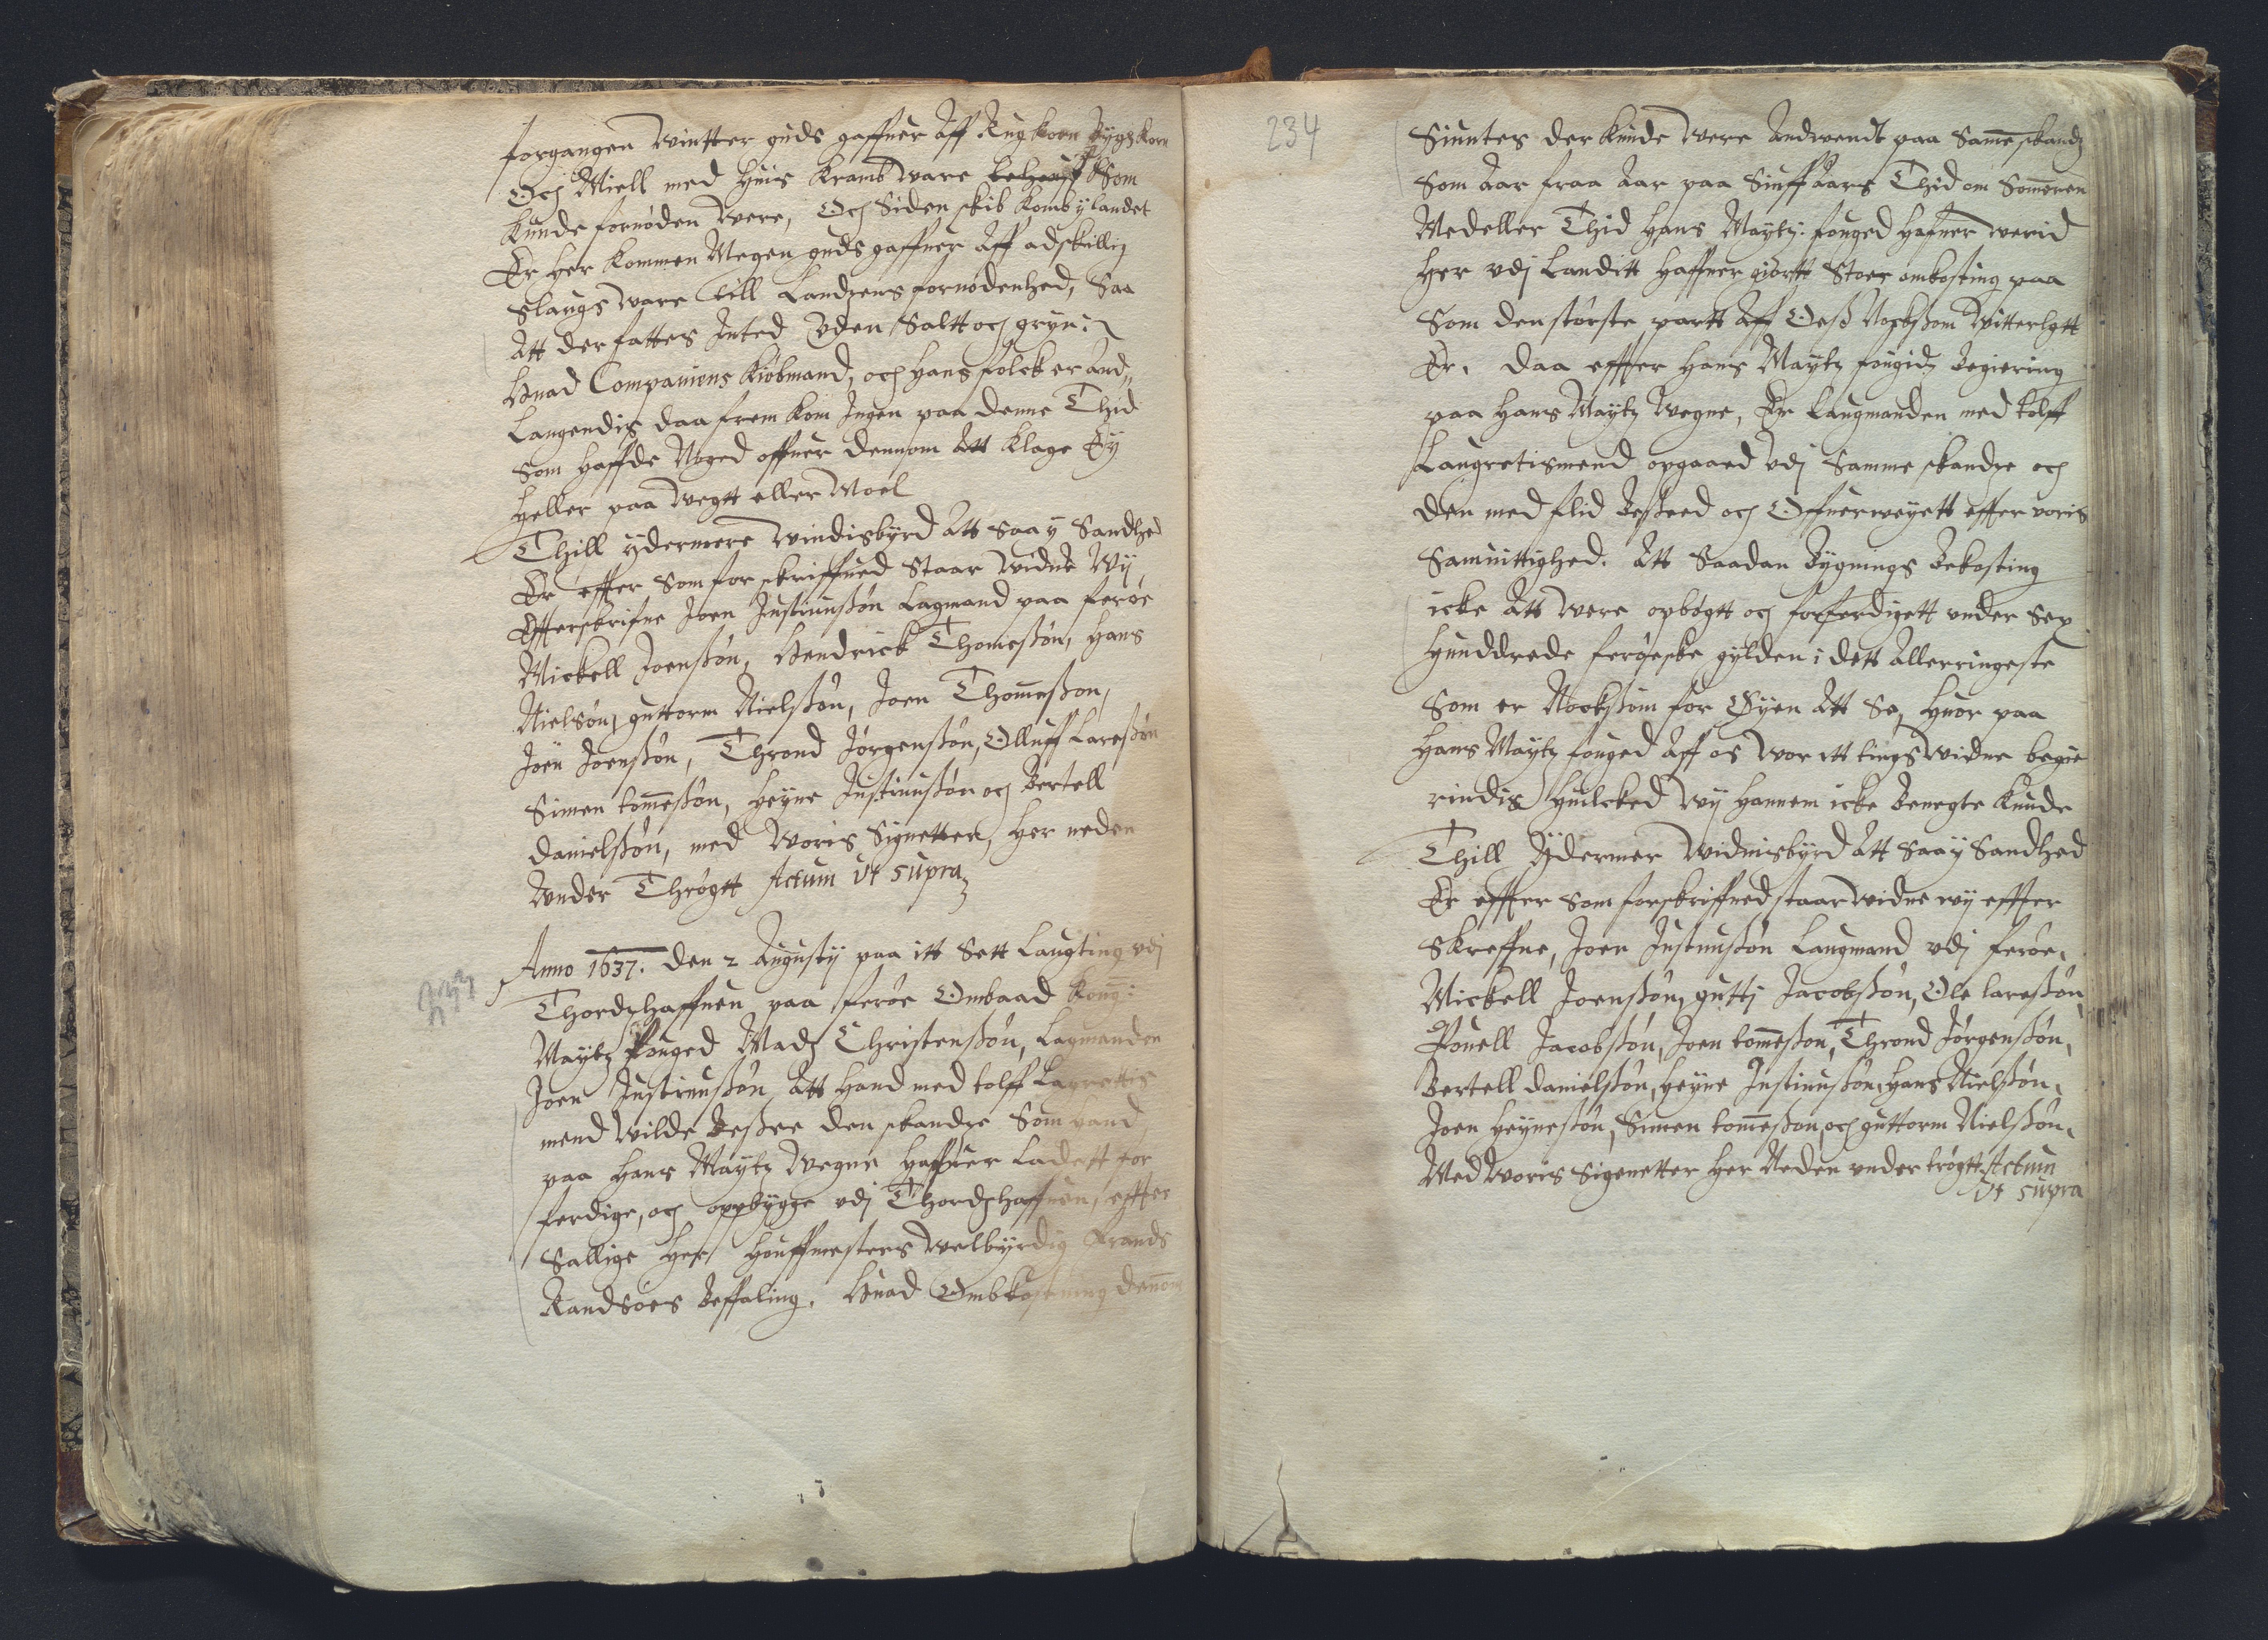 forgangen Wintter guds gaffuer Aff Rug korn Bygs korn
Och Miell med huis kramb Ware behouff Som
kunde fornöden Were, Och Siden skib komb y landet
Er her kommen Megen guds gaffuer Aff adskillig
slaugs Ware till Landzens fornödenhed, Saa
Att der fattes Inted Vden Saltt och gryn:
Huad Companiens kiöbmand, och hans folck er and„
Langendis daa frem kom Ingen paa denne Thid
Som haffde Noged offuer dennom Att klage Ey
heller paa Wegtt eller Moel
Thill ydermere Windisbyrd Att saa y Sandhed
Er effter Som for skriffued Staar Widne Wy
Effterskrifne Joen Justinußön Lagmand paa feröe
Mickell Joenßön, Hendrick Thomeßön, Hans
Nielsön, guttorm Nielßön, Joen Thomeßon,
Joen Joenßön, Thrond Jörgenßön, Olluff Lareßön
Simen tomeßön, Heyne Justinußön och Bertell
Danielßön, med Woris Signetter, her neden
Wnder Thrögtt Actum Vt supra
Anno 1637. den 2 Augusty paa itt Sett Laugting vdj
Thordzhaffnen paa feröe Ombaad Kong:
Maytz fouged Madz Christenßön, Lagmanden
Joen Justinußön Att hand med tolff Lagrettis
mend Wilde Beßee den skandze Som hand
paa Hans Maytz Wegne haffuer Ladett for
ferdige, och opbygge vdj Thordzhaffnen, effter
Sallige Her Houffmesters Welbyrdig Frands
Randsoes Beffaling. Huad Ombkostning dennom
234
Siuntes der kunde Were Andwendt paa Samme skandz
Som Aar fraa Aar paa Siuff Aars Thid om Sommeren
Medeller Thid Hans Maytz: fouged Hafuer werid
her vdj Landitt haffuer giortt Stoer ombkosting paa
Som den störste partt Aff Oeß Nockßom Witterligtt
Er, daa effter Hans Maytz fougidz Begiering
paa Hans Maytz Wegne, Er Laugmanden med tolff
Laugretismend opgaaed vdj Samme skandze och
den med flid Beßeed och Offuerweyett effter woris
Samuittighed. Att Saadan Bygnings Bekosting
icke Att Were opbögtt och forferdigett under Sex
hunddrede feröeske gylden i dett Allerringeste
Som er Nockßom for Øyen Att Se, huor paa
Hans Maytz fouged Aff os Wor itt tings Widne begie
rindis huilcked Wij hannem icke Benegte kunde
Thill Ydermer Widnisbyrd Att Saa y Sandhed
Er effter som forskriffued staar Widne wij effter
Skreffne, Joen Justinußön Laugmand vdj feröe,
Mickell Joenßön, guttj Jacobßön, Ole lareßön
Pouell Jacobßön, Joen tomeßon, Thrond Jörgenßön,
Bertell Danielßön, Heyne Justinußön, Hans Nielßön,
Joen Heyneßön, Simen tomeßon, och guttorm Nielßön,
Med Woris Sigenetter her Neden vnder trögtt Actum
Vt supra